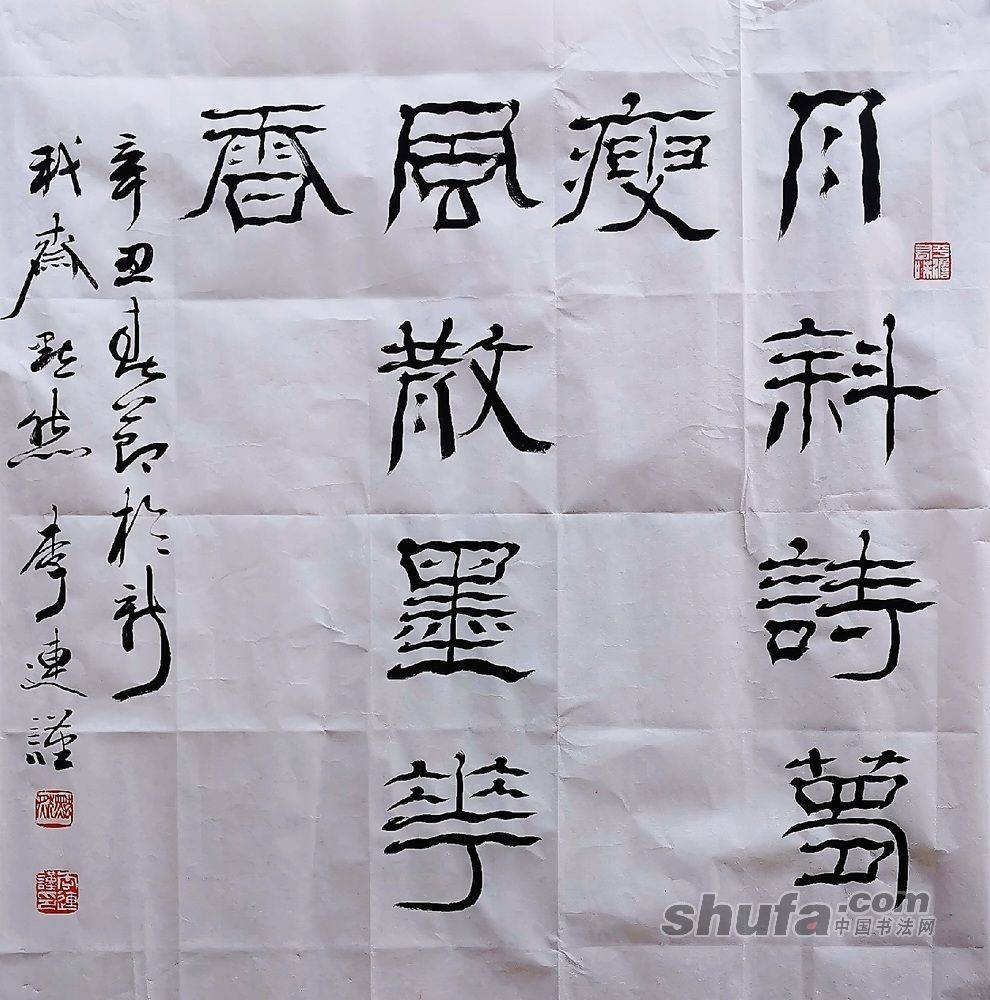 月斜詩夢
瘦
風散墨花
香
辛丑春節於新
我齋默然 李連謹
shufa.com
中国书法网